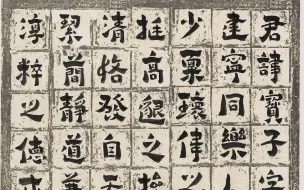 君諱寶子字
建寧同樂人
少稟瓌偉之
挺高邈之操
清恪發自天
絜簡靜道兼
淳粹之德戎